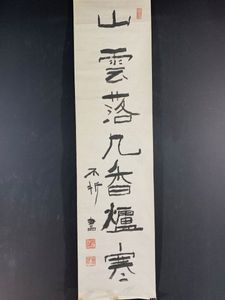 山雲落几香爐寒
不折 書